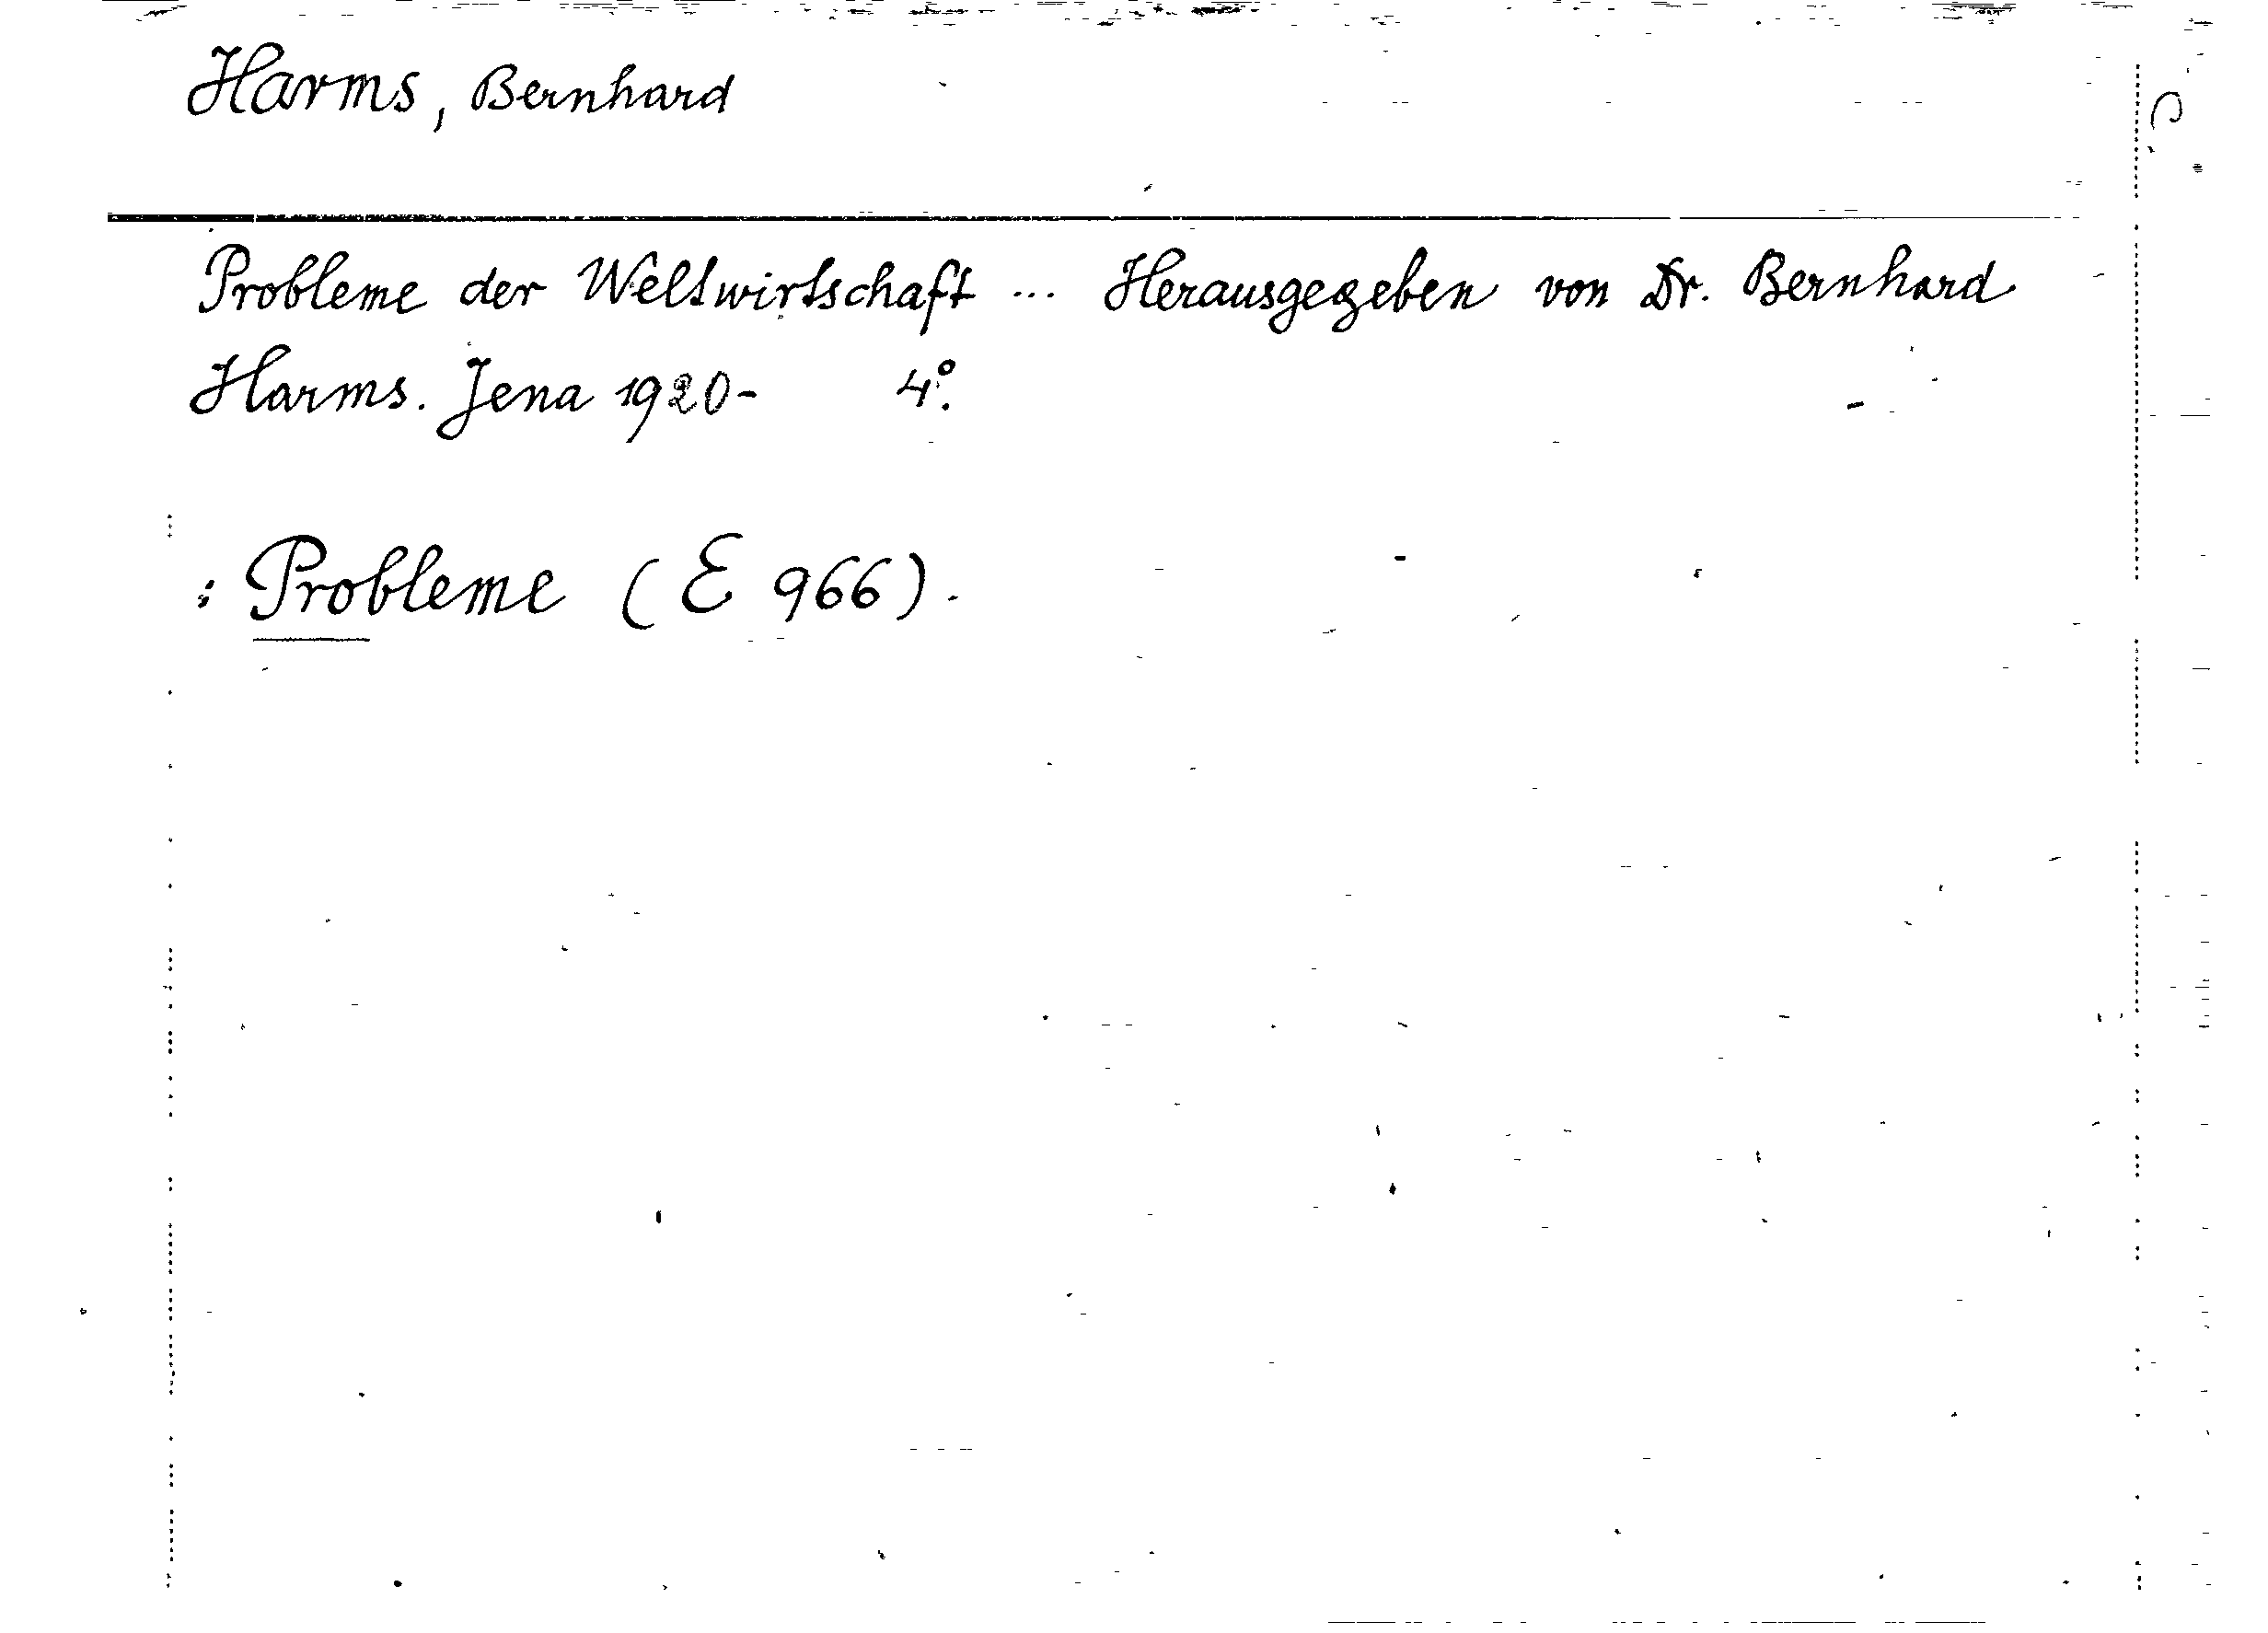 Harms, Bernhard
Probleme der Weltwirtschaft ... Herausgegeben von Dr. Bernhard
Harms. Jena 1920- 4º.
: Probleme (E 966).